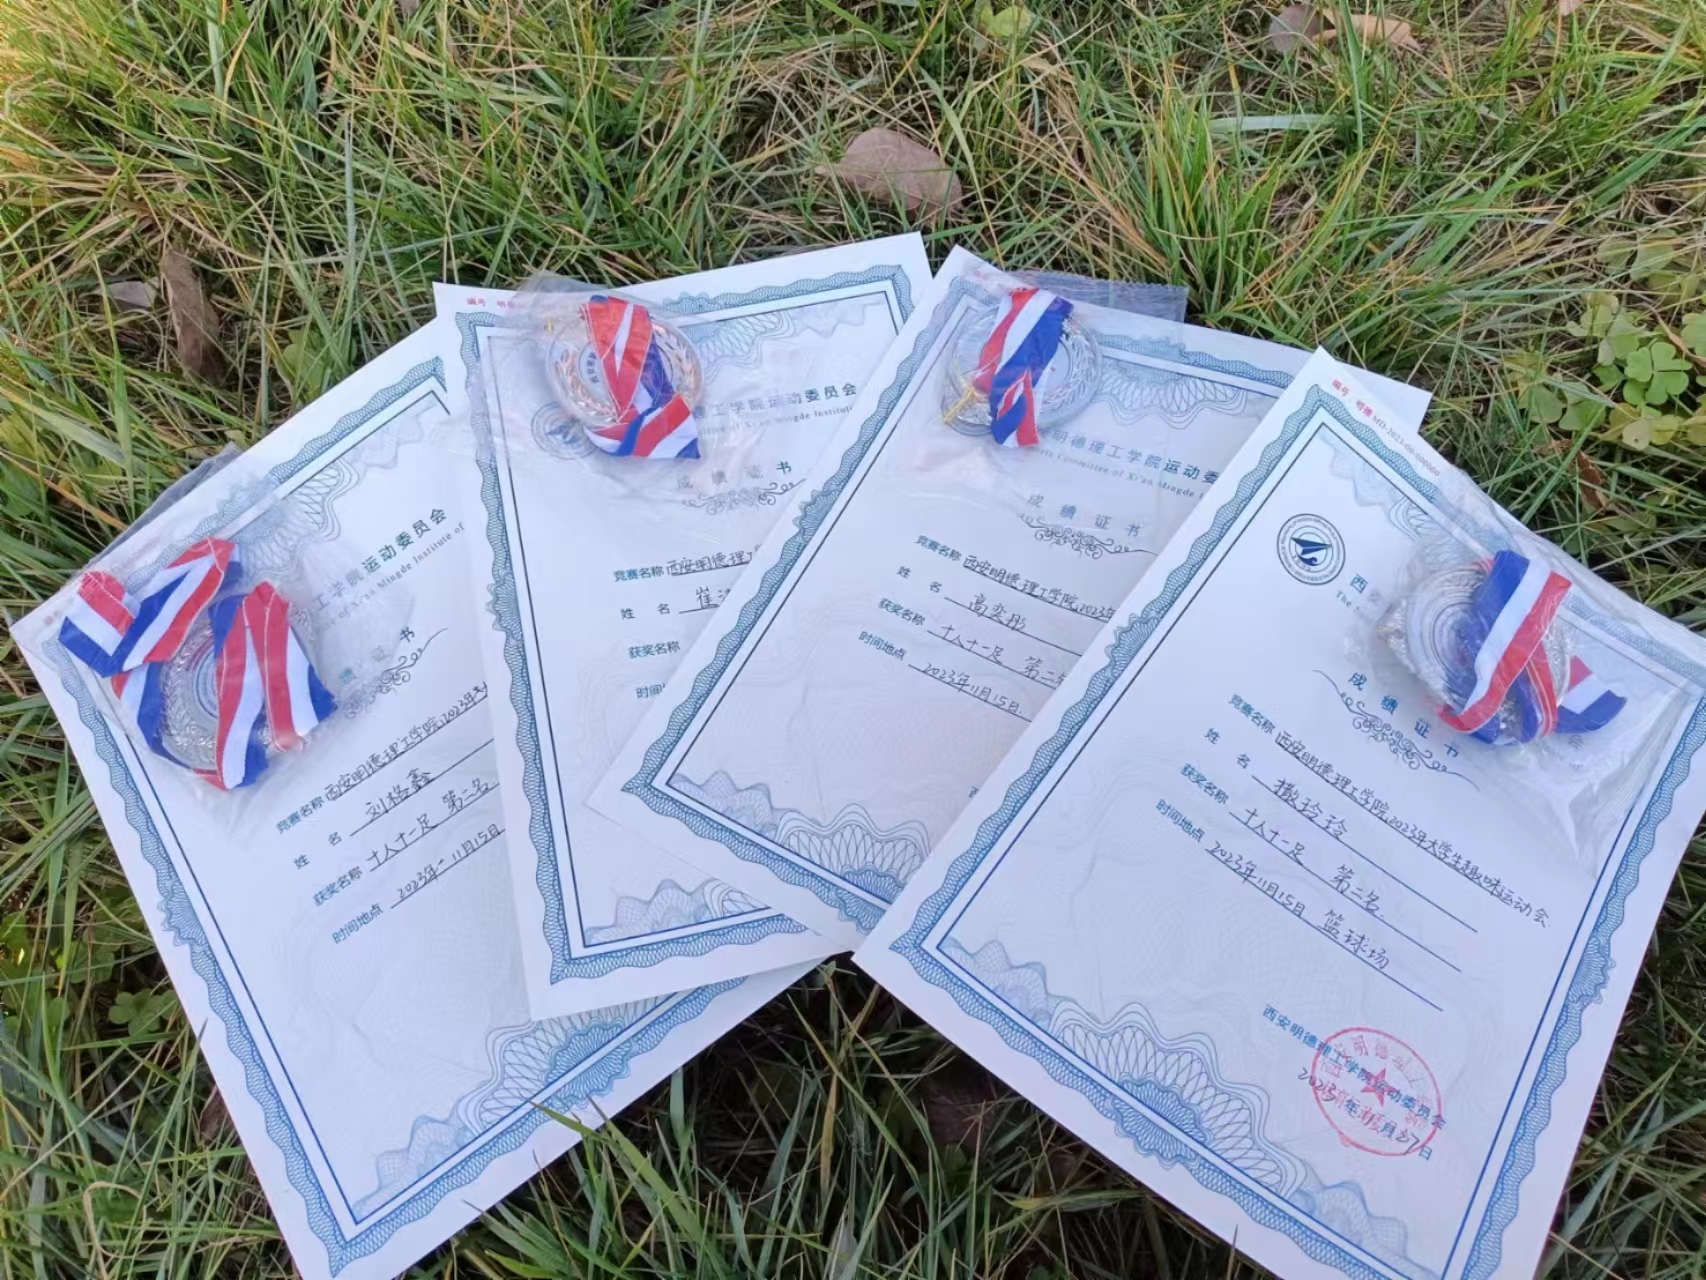 运动委员会
Mingde Institute of
证书
竞赛名称 西安明德理工学院2023年
姓 名 刘格鑫
获奖名称 十人十一足 第二名
时间地点 2023年11月15日
编号 明
工学院运动委员会
Mingde Institute
成绩证书
竞赛名称 西安明德理工
姓 名 崔
获奖名称
时间
明德理工学院运动委
Committee of Xi'an Mingde
成绩证书
竞赛名称 西安明德理工学院2023年
姓 名 高奕彤
获奖名称 十人十一足 第二名
时间地点 2023年11月15日
编号 明德
西
The
成绩证书
竞赛名称 西安明德理工学院2023年大学生趣味运动会
姓 名 撒玲玲
获奖名称 十人十一足 第二名
时间地点 2023年11月15日 篮球场
西安明德理工学院运动委员会